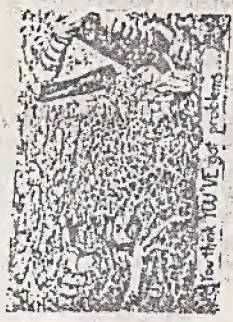 You think YOU'VE got problems